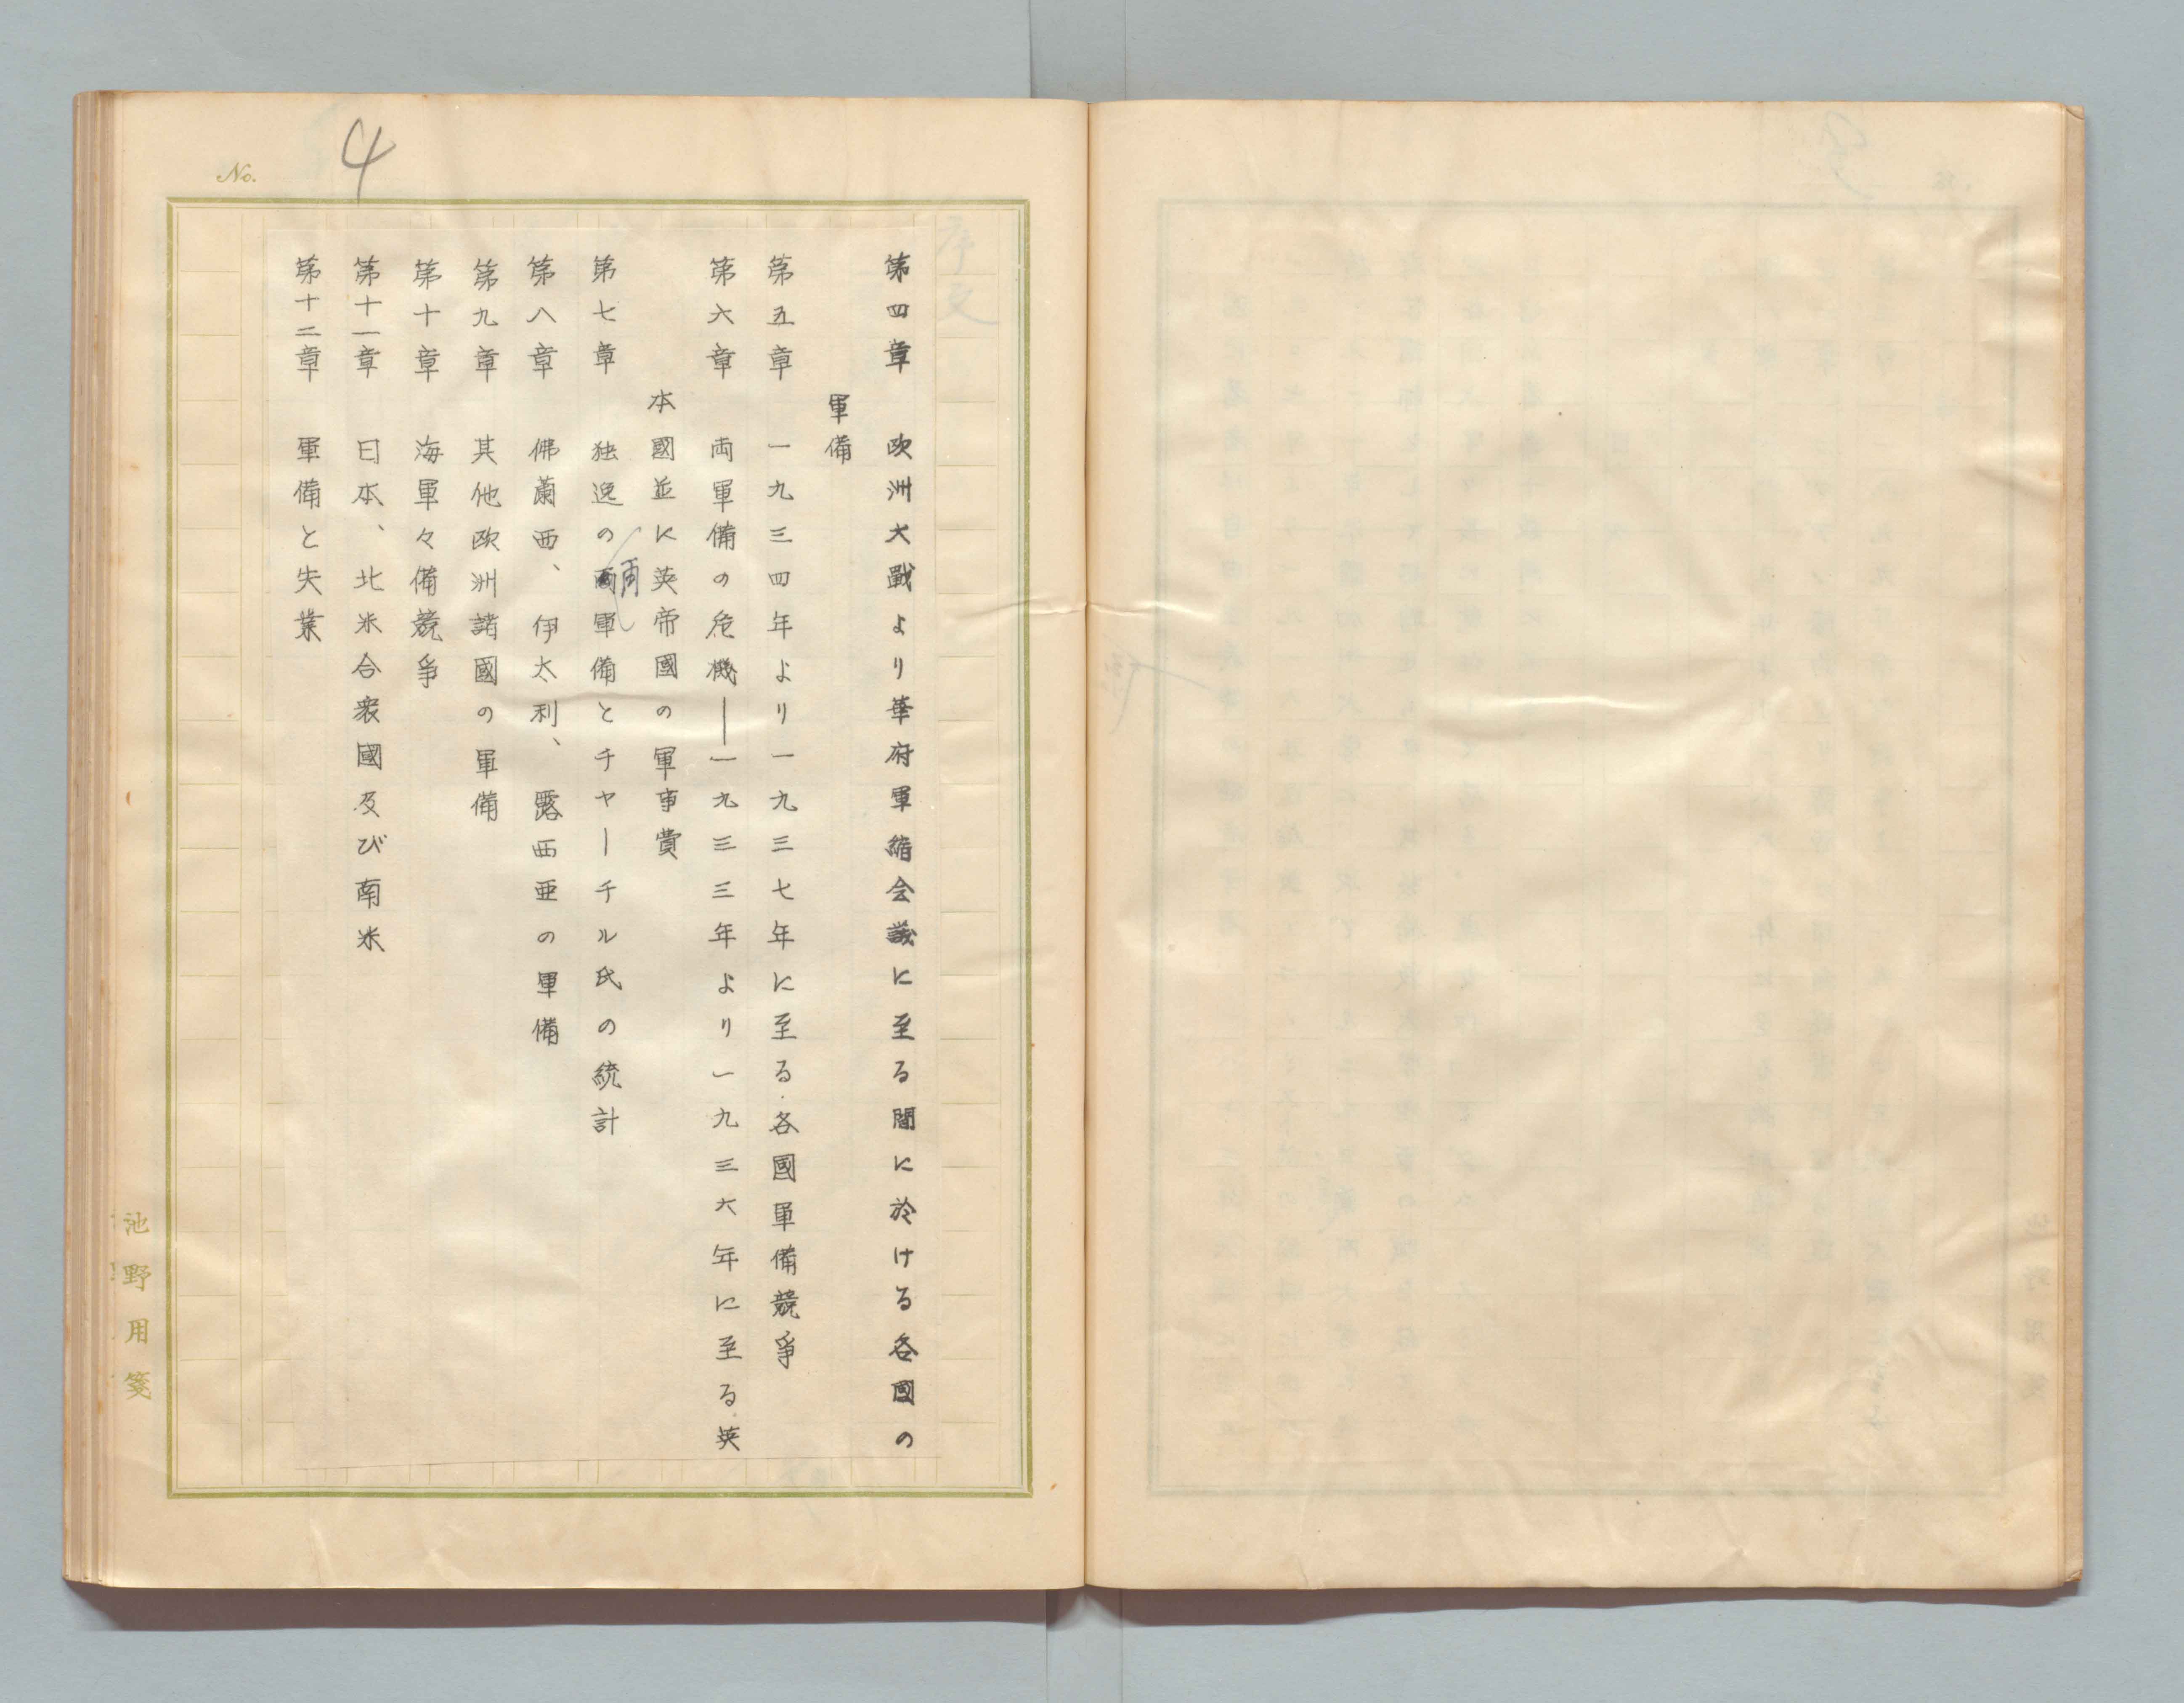 No.
4
第四章　欧洲大戰より華府軍縮会議に至る間に於ける各國の
軍備
第五章　一九三四年より一九三七年に至る各國軍備競爭
第六章　両軍備の危機―一九三三年より一九三六年に至る英
本國並に英帝國の軍事費
第七章　独逸の両軍備とチャーチル氏の統計
再
第八章　佛蘭西、伊太利、露西亜の軍備
第九章　其他欧洲諸國の軍備
第十章　海軍々備競爭
第十一章　日本、北米合衆國及び南米
第十二章　軍備と失業
池野用箋